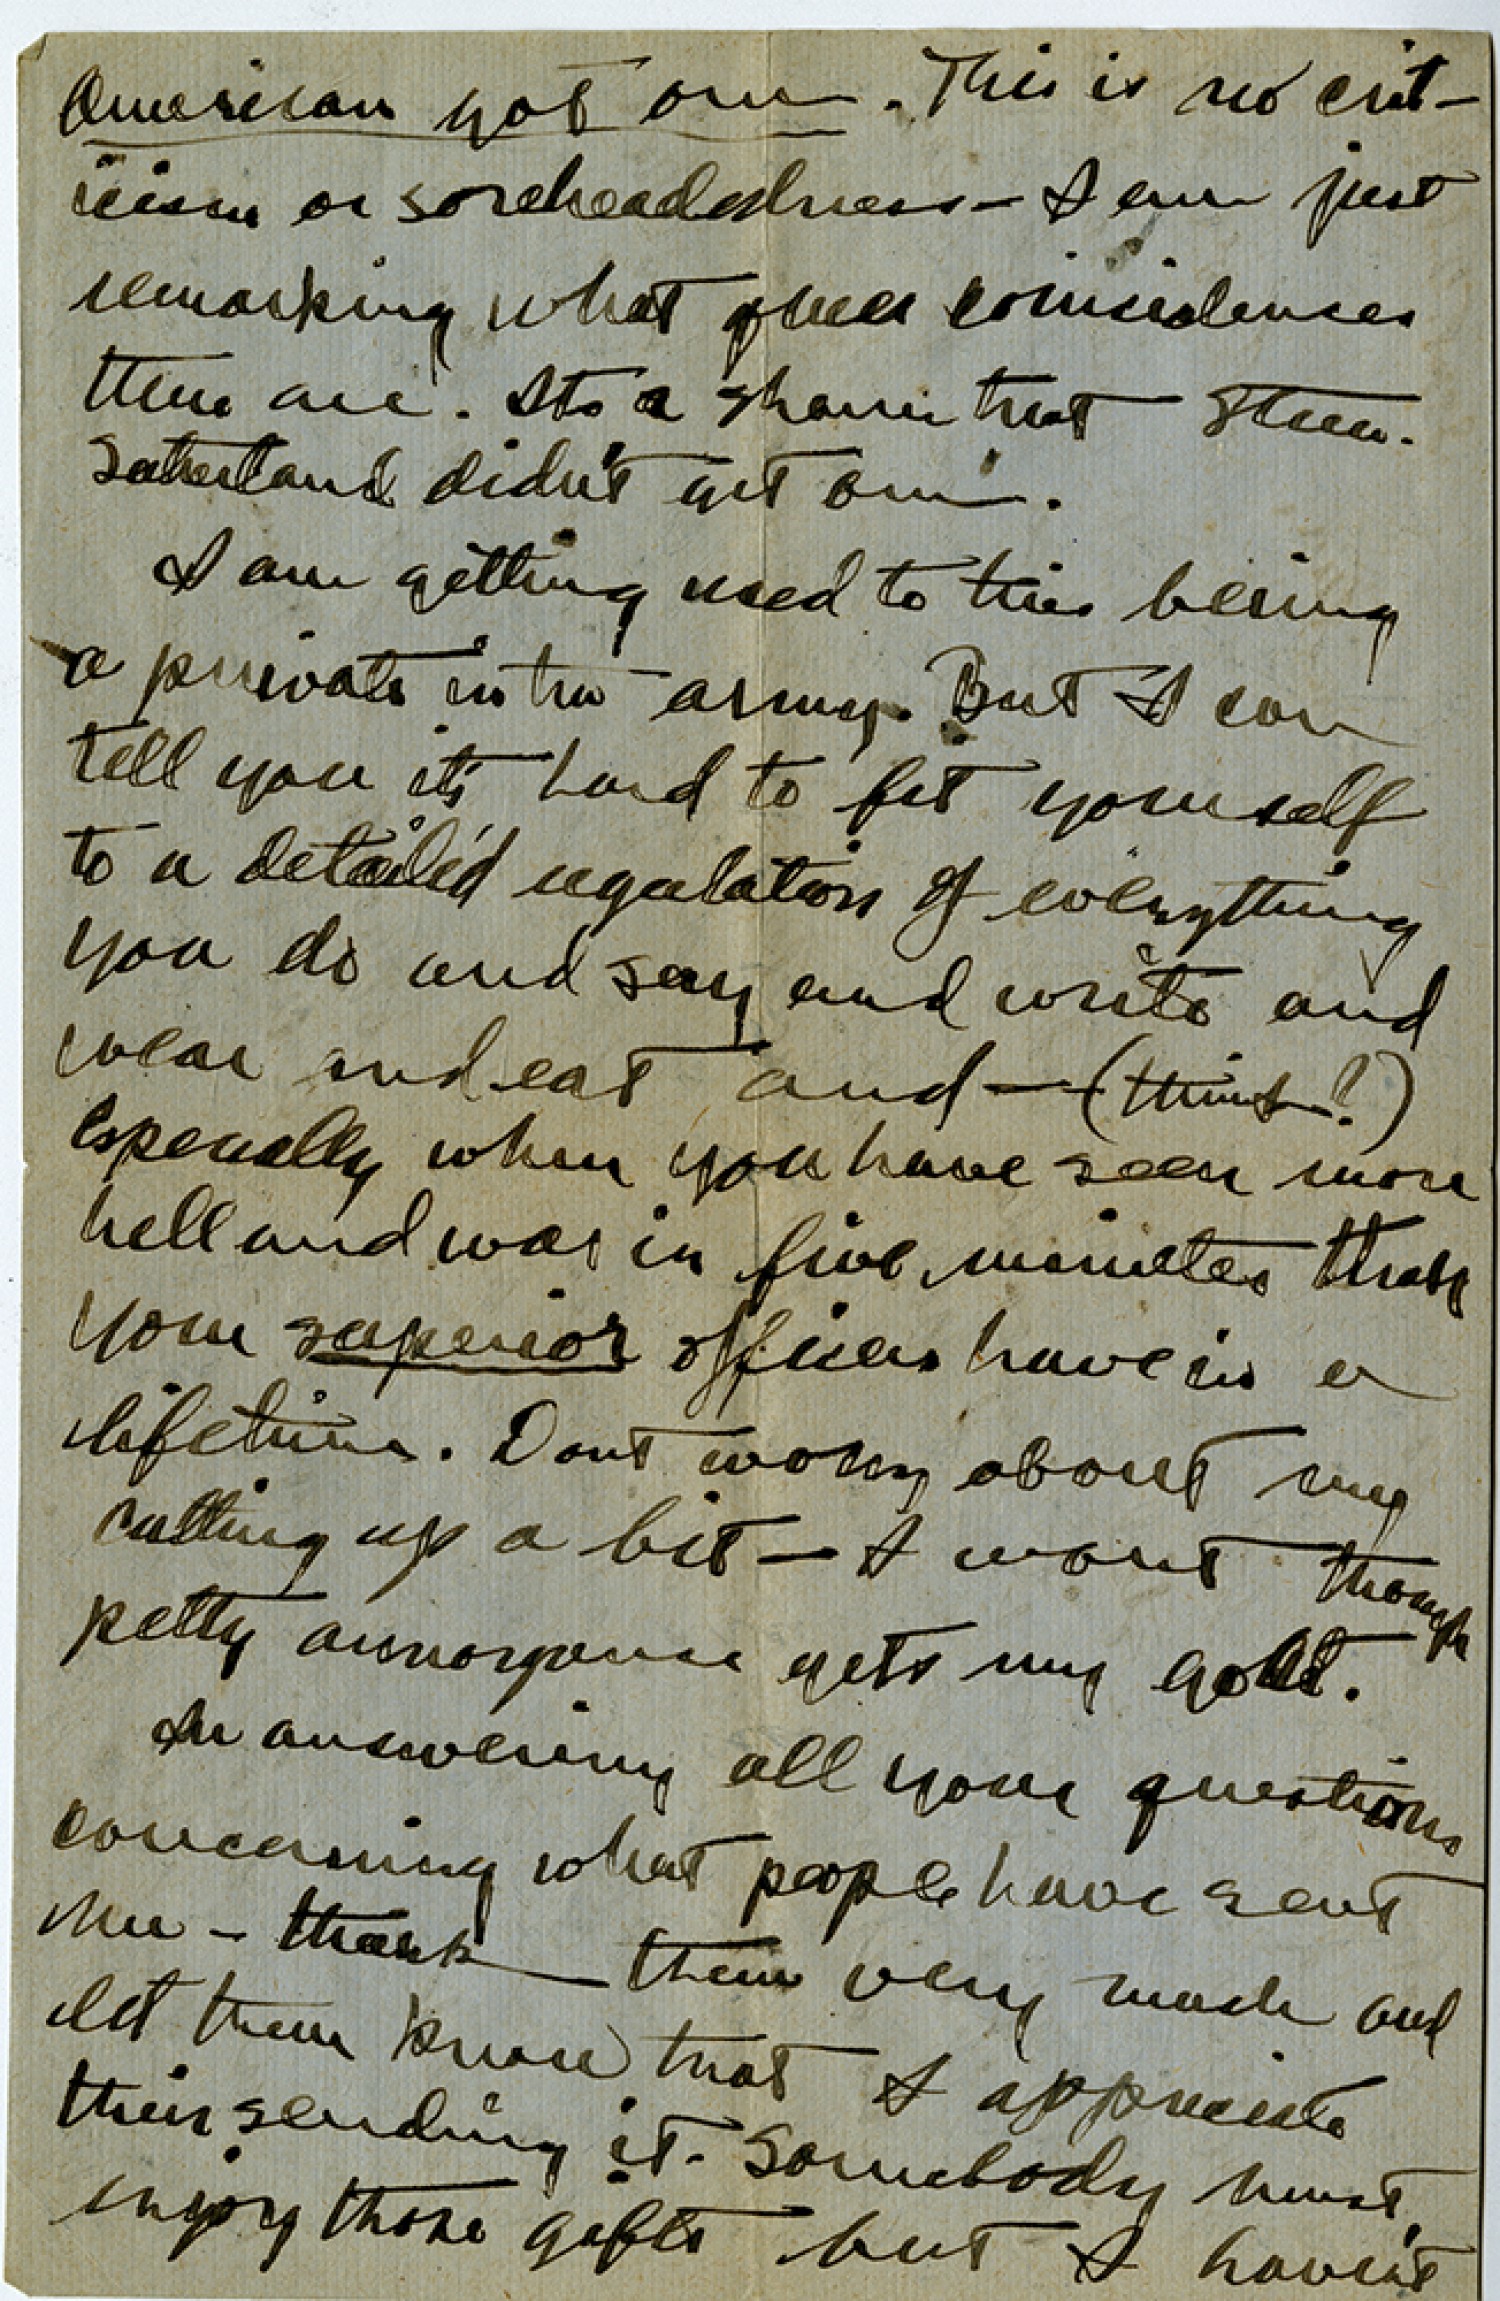 American got one. This is no crit-
icism or soreheadedness - I am just
remarking what queer coincidences
there are. Its a shame that
Sutherland didn't get one.
I am getting used to this being
a private in the army. But I can
tell you it's hard to fit yourself
to a detailed regulation of everything
you do and say and write and
wear and eat and — (think?)
especially when you have seen more
hell and war in five minutes than
your superior officers have in a
lifetime. Dont worry about my
cutting up a bit - I wont though
petty annoyance gets my goat.
In answering all your questions
concerning what people have sent
me - thank them very much and
let them know that I appreciate
their sending it. Somebody must
enjoy those gifts but I havent